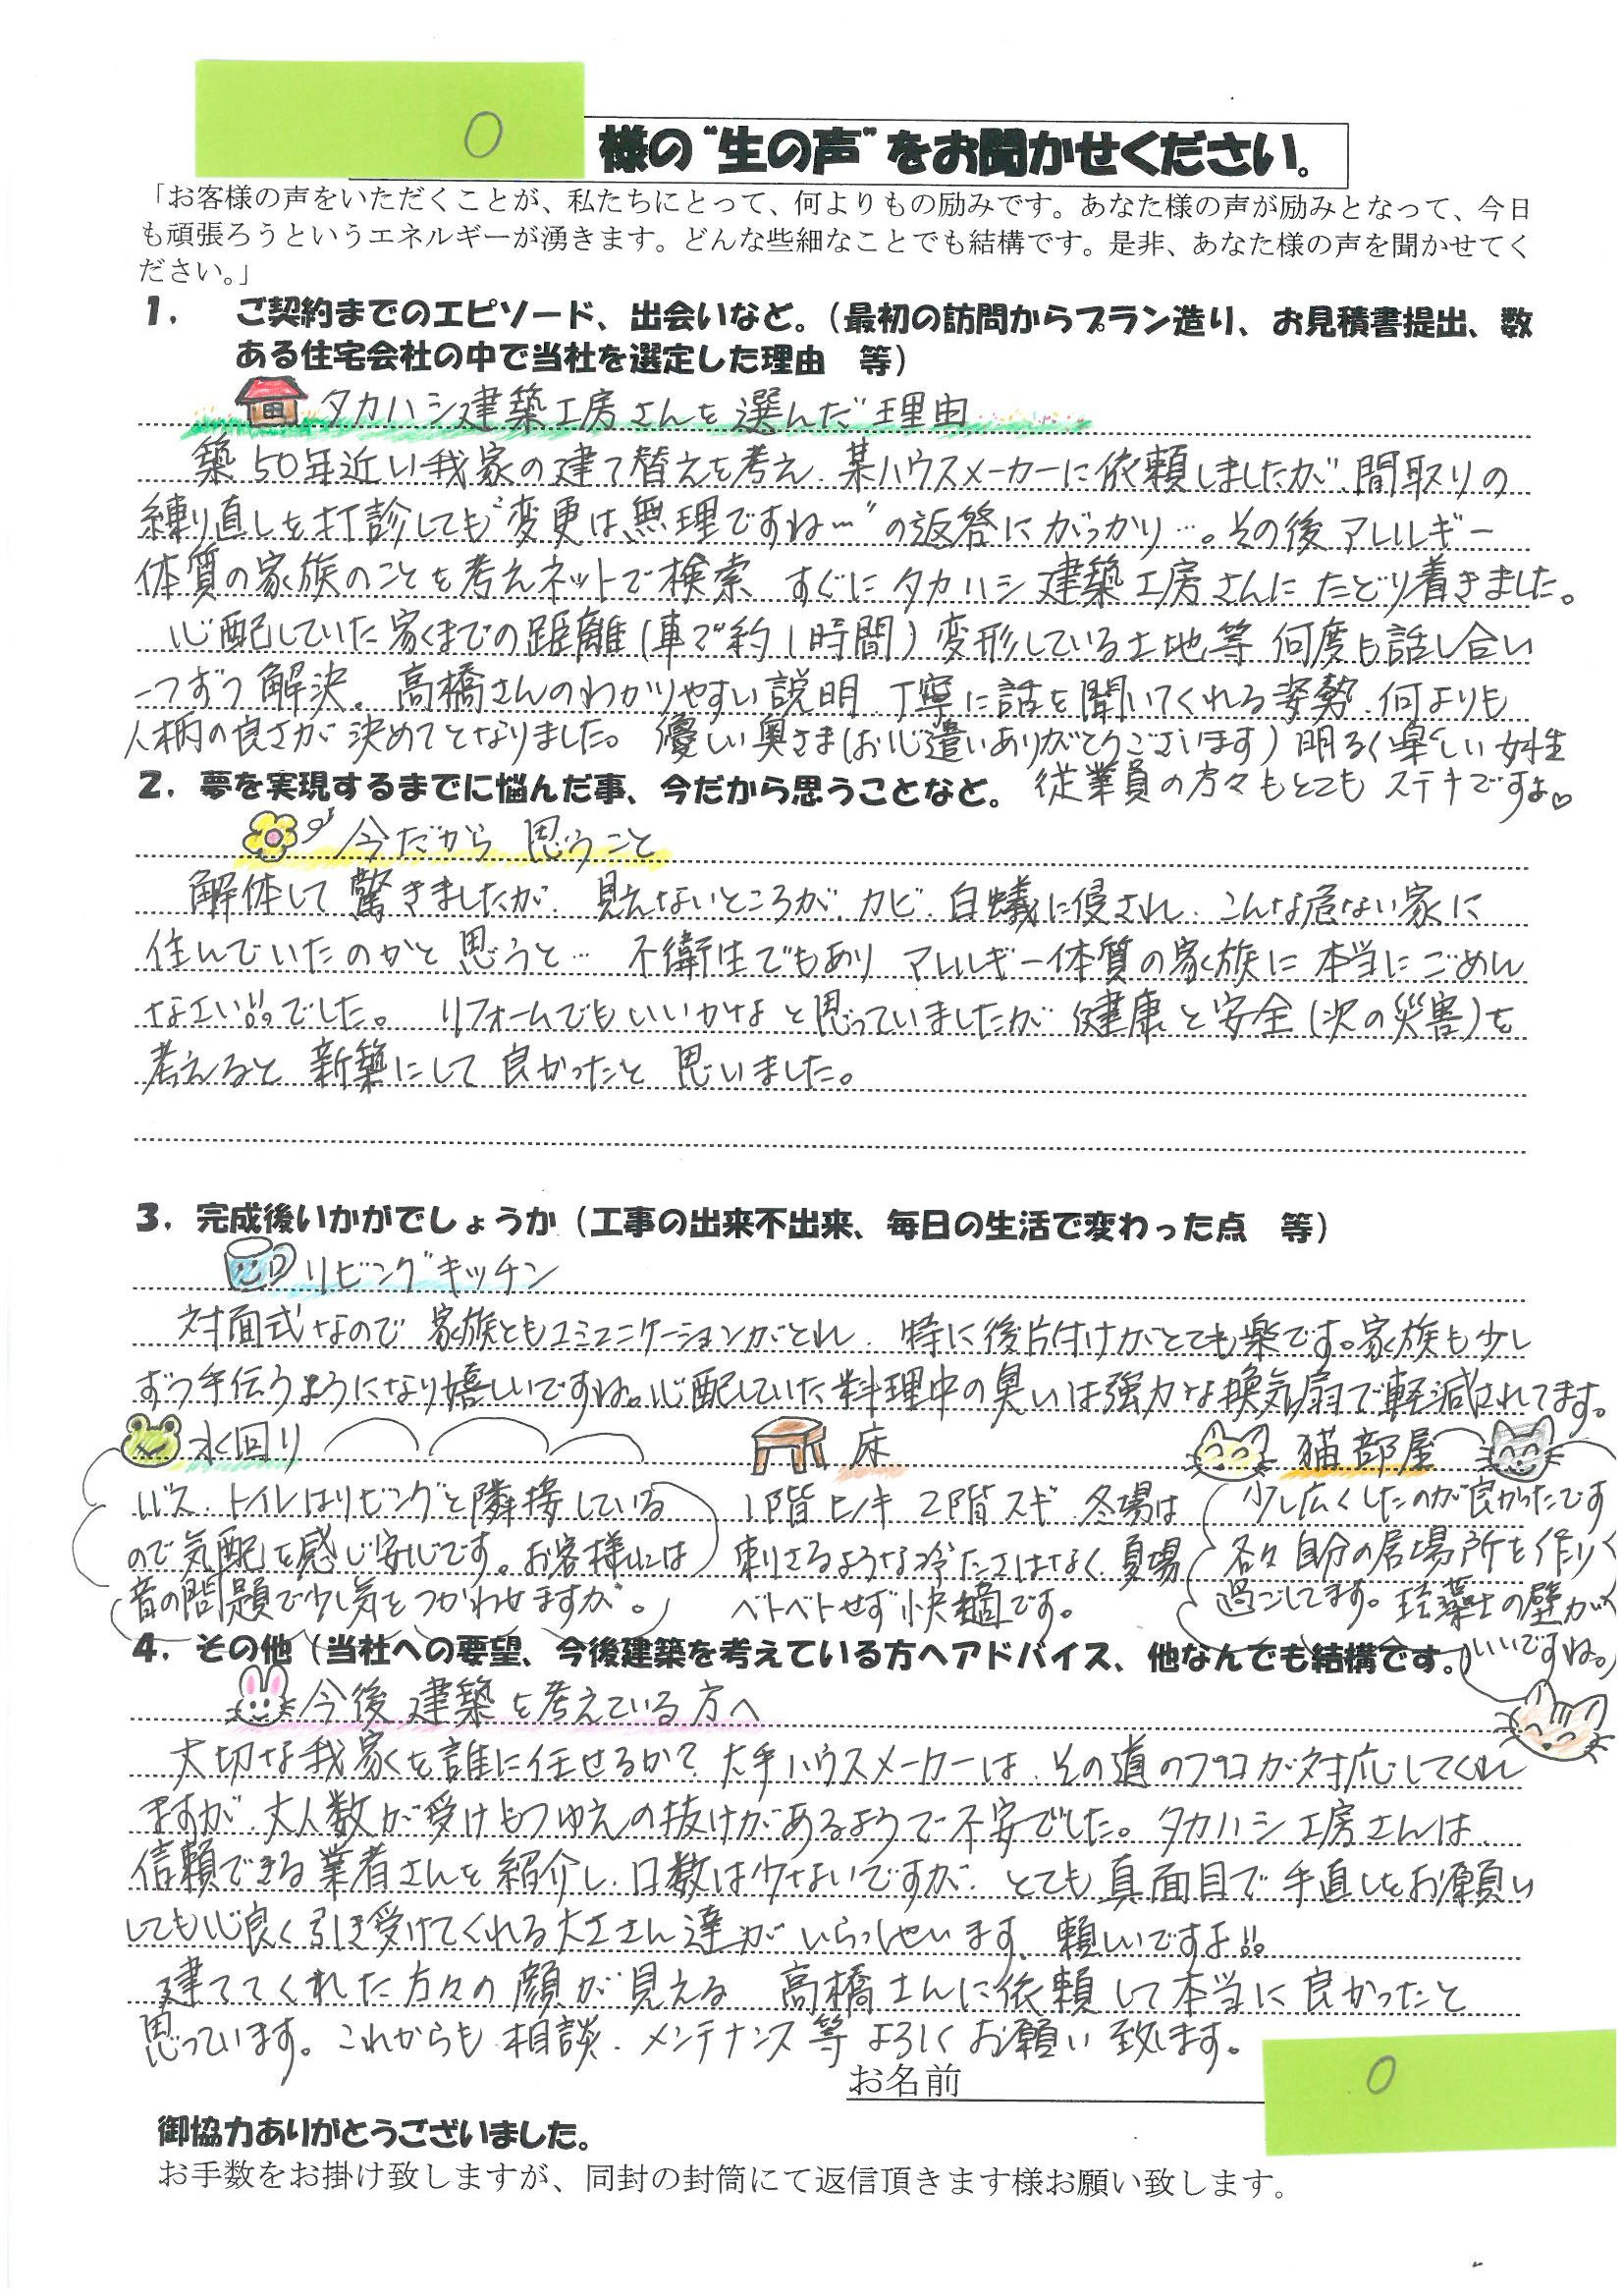 O 様の“生の声”をお聞かせください。
「お客様の声をいただくことが、私たちにとって、何よりもの励みです。あなた様の声が励みとなって、今日
も頑張ろうというエネルギーが湧きます。どんな些細なことでも結構です。是非、あなた様の声を聞かせてく
ださい。」
1. ご契約までのエピソード、出会いなど。（最初の訪問からプラン造り、お見積書提出、数
ある住宅会社の中で当社を選定した理由 等）
タカハシ建築工房さんを選んだ理由
築50年近い我家の建て替えを考え、某ハウスメーカーに依頼しましたが、間取りの
練り直しを打診しても“変更は無理ですね…”の返答にがっかり…。その後アレルギー
体質の家族のことを考えネットで検索 すぐにタカハシ建築工房さんにたどり着きました。
心配していた家までの距離（車で約1時間）変形している土地等 何度も話し合い
一つずつ解決。高橋さんのわかりやすい説明、丁寧に話を聞いてくれる姿勢、何よりも
人柄の良さが決めてとなりました。優しい奥さま（お心遣いありがとうございます）明るく楽しい女性
従業員の方々もとても ステキですよ♡
2. 夢を実現するまでに悩んだ事、今だから思うことなど。
今だから思うこと
解体して驚きましたが、見えないところが、カビ、白蟻に侵され、こんな危ない家に
住んでいたのかと思うと… 不衛生でもあり アレルギー体質の家族に本当にごめん
なさい!!でした。リフォームでもいいかなと思っていましたが 健康と安全（次の災害）を
考えると 新築にして良かったと思いました。
3. 完成後いかがでしょうか（工事の出来不出来、毎日の生活で変わった点 等）
リビングキッチン
対面式なので 家族ともコミュニケーションがとれ、特に後片付けがとても楽です。家族も少し
ずつ手伝うようになり嬉しいですね。心配していた料理中の臭いは強力な換気扇で軽減されてます。
水回り
バス、トイレはリビングと隣接している
ので気配を感じ安心です。お客様には
音の問題で少し気をつかわせますが。
床
1階ヒノキ 2階スギ 冬場は
刺さるような冷たさはなく、夏場
ベトベトせず快適です。
猫部屋
少し広くしたのが良かったです
各々自分の居場所を作り
過ごしてます。珪藻土の壁が
いいですね。
4. その他（当社への要望、今後建築を考えている方へアドバイス、他なんでも結構です。）
今後建築を考えている方へ
大切な我家を誰に任せるか？大手ハウスメーカーは、その道のプロが対応してくれ
ますが、大人数が受けもつゆえの抜けがあるようで不安でした。タカハシ工房さんは、
信頼できる業者さんを紹介し、口数は少ないですが、とても真面目で手直しをお願い
しても心良く引き受けてくれる大工さん達がいらっしゃいます、頼しいですよ!!
建ててくれた方々の顔が見える 高橋さんに依頼して本当に良かったと
思っています。これからも相談、メンテナンス等よろしくお願い致します。
お名前 O
御協力ありがとうございました。
お手数をお掛け致しますが、同封の封筒にて返信頂きます様お願い致します。